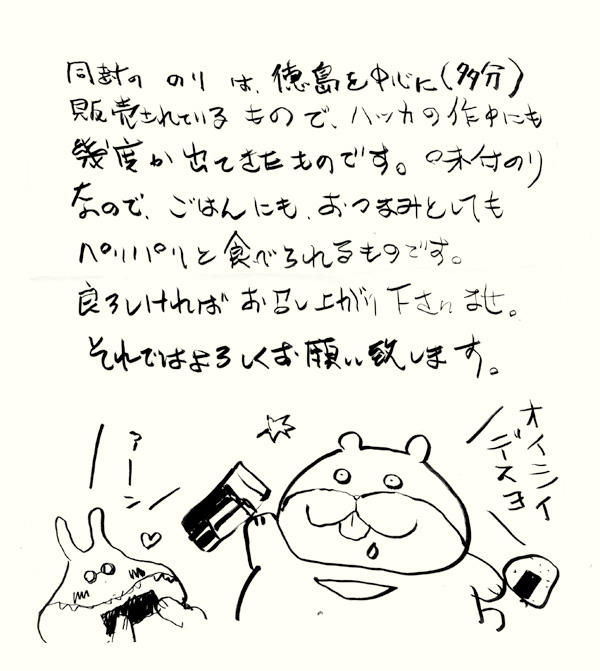 同封の のり は、徳島を中心に(多分)
販売されている もので、ハッカの作中にも
幾度か出てきたものです。味付のり
なので、ごはんにも、おつまみとしても
パリパリと食べられるものです。
良ろしければ お召し上がり下さいませ。
それではよろしくお願い致します。
アーン
オイシイ
デースヨ